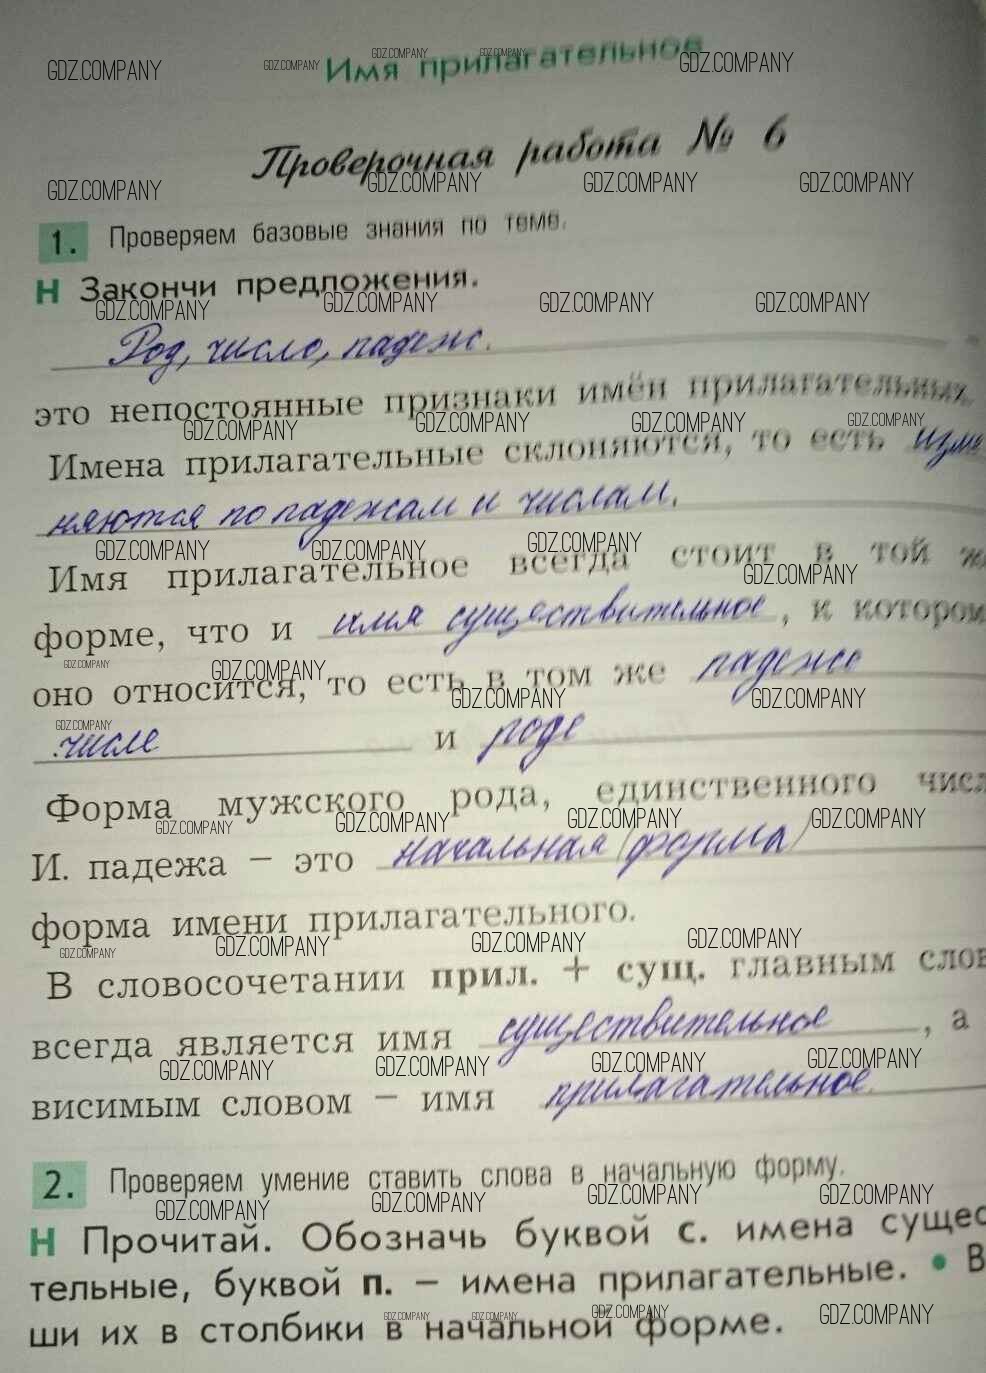 Имя прилагательное
Проверочная работа № 6
1. Проверяем базовые знания по теме.
Н Закончи предложения.
Род, число, падеж.
это непостоянные признаки имён прилагательных.
Имена прилагательные склоняются, то есть изме
няются по падежам и числам.
Имя прилагательное всегда стоит в той ж
форме, что и имя существительное, к котором
оно относится, то есть в том же падеже
числе и роде
Форма мужского рода, единственного числ
И. падежа – это начальная (форма)
форма имени прилагательного.
В словосочетании прил. + сущ. главным слов
всегда является имя существительное, а
висимым словом – имя прилагательное.
2. Проверяем умение ставить слова в начальную форму.
Н Прочитай. Обозначь буквой с. имена сущес
тельные, буквой п. – имена прилагательные. • В
ши их в столбики в начальной форме.
GDZ.COMPANY